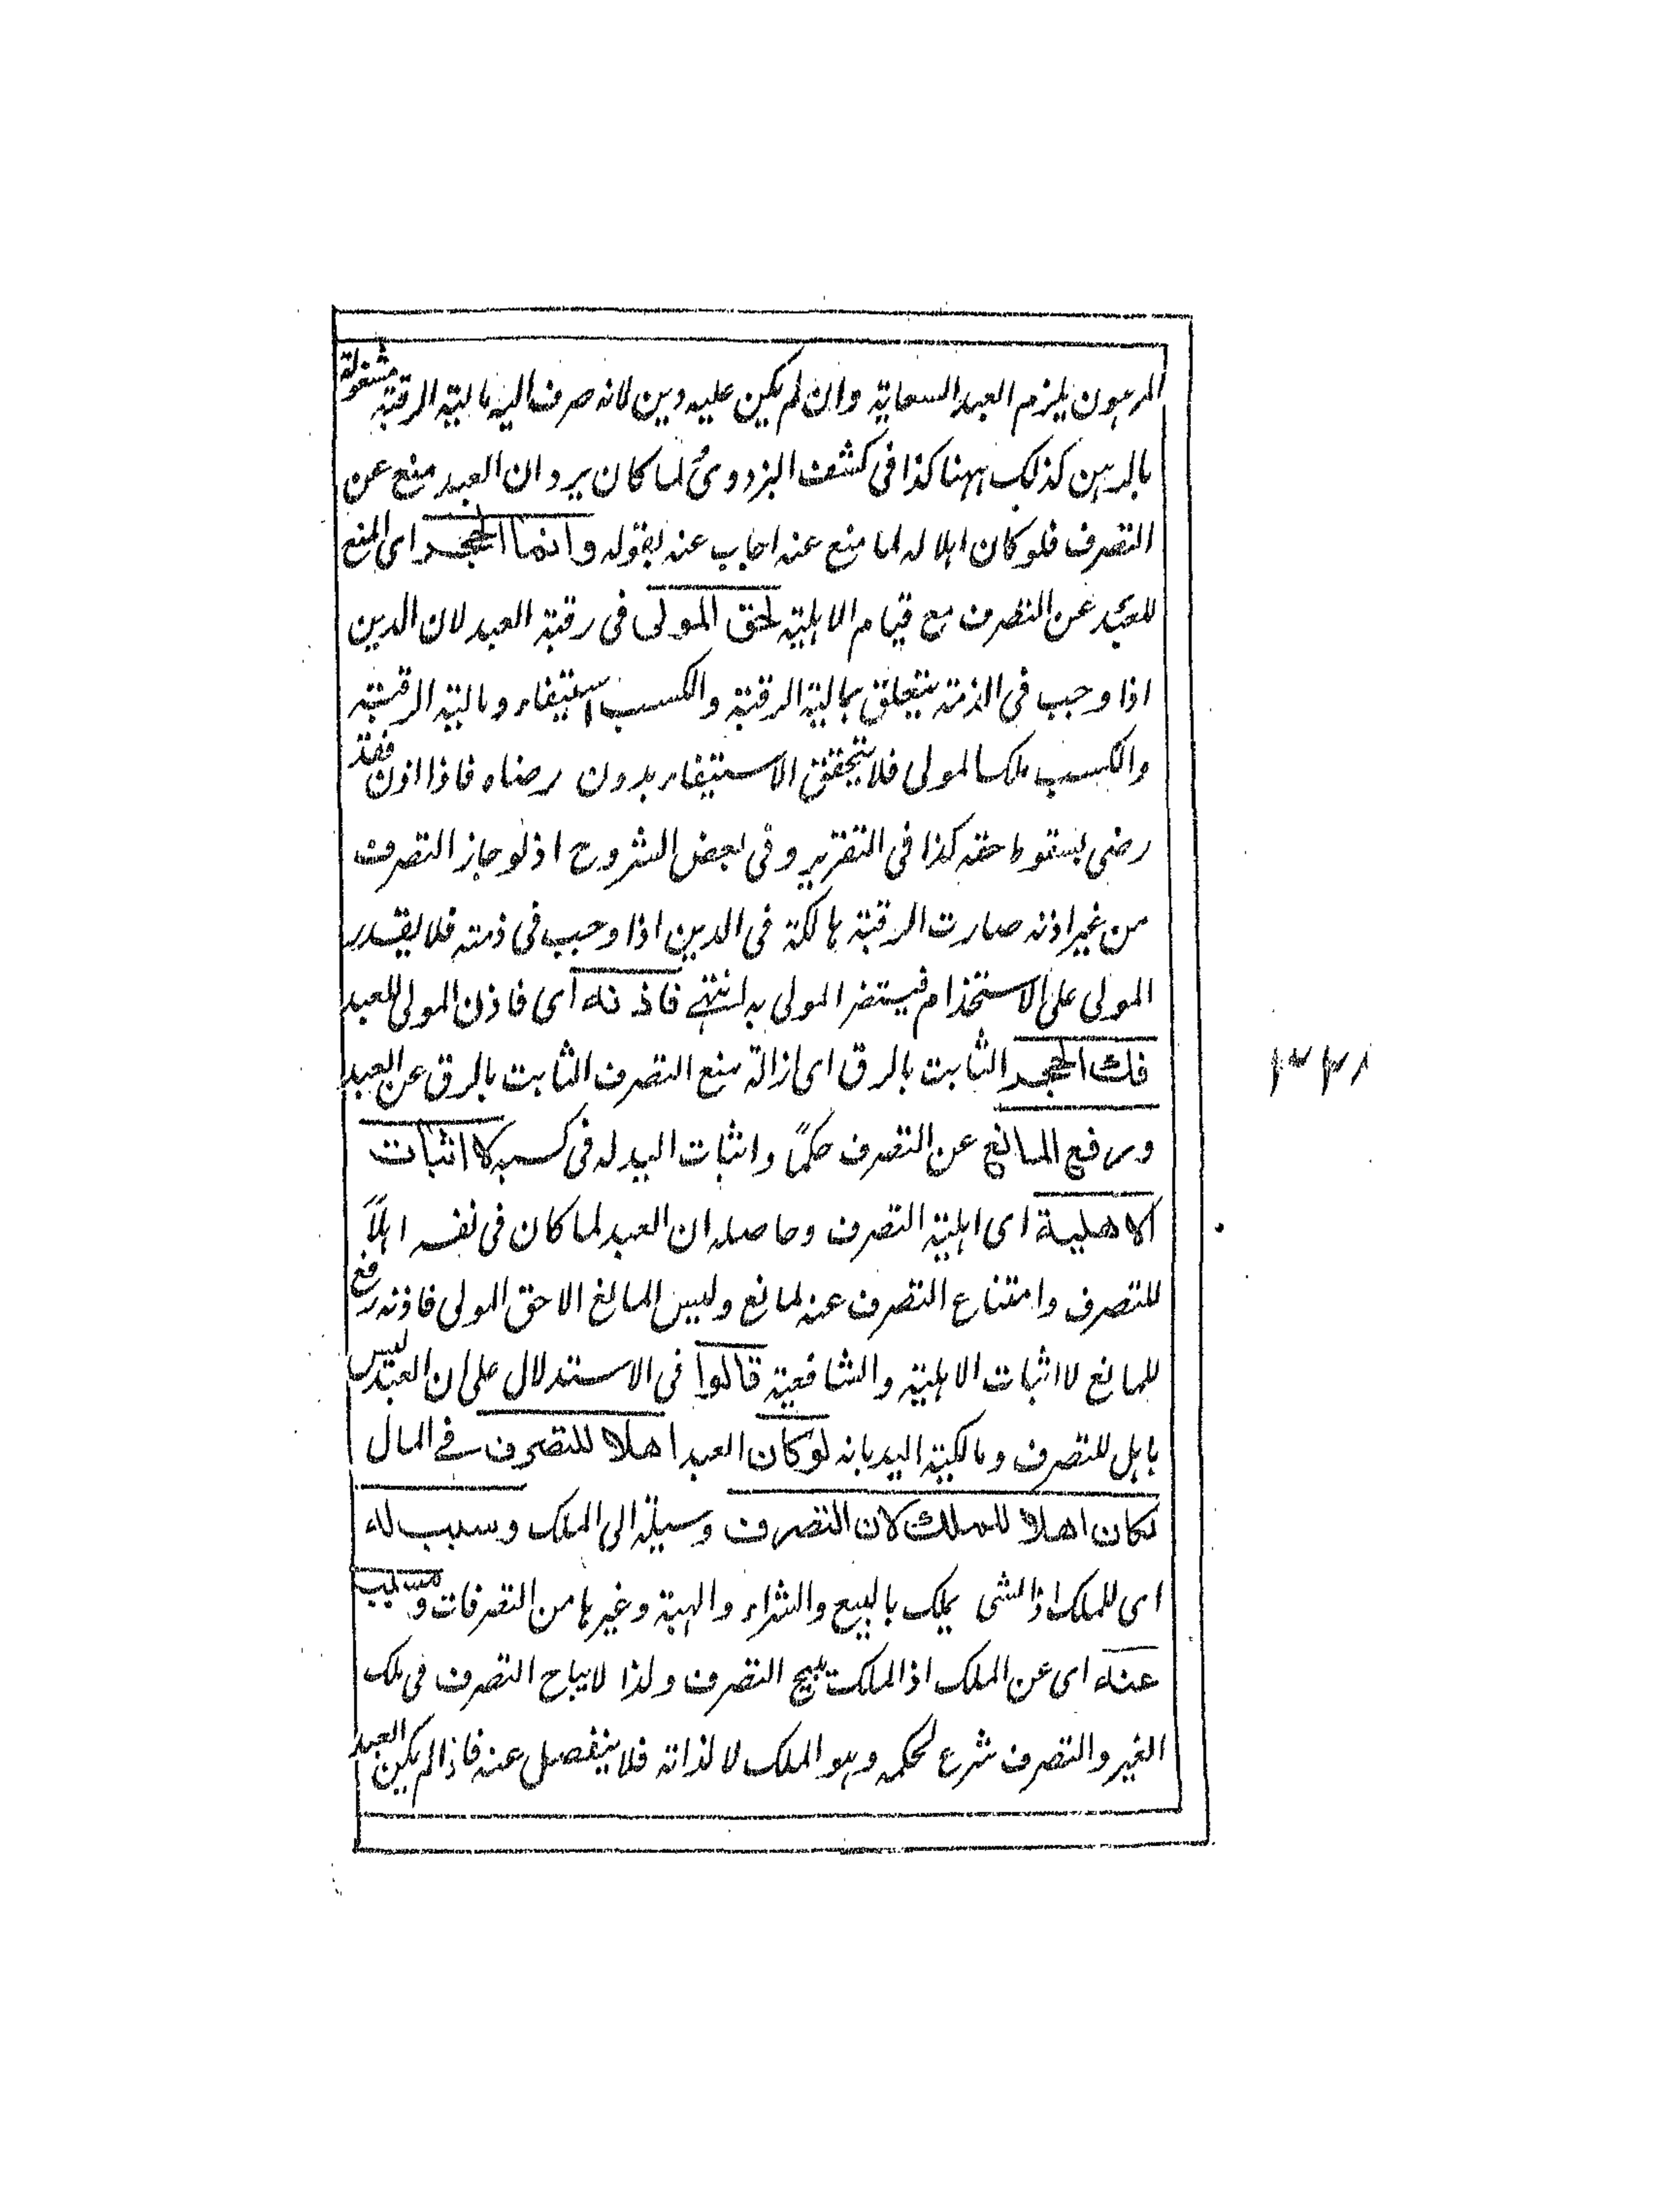 المرهون يلزم العبد السعاية وان لم يكن عليه دين لانه صرف اليه مالية الرقبة مشغولة
بالرهن كذلك ههنا كذا في كشف البزدوي لما كان يرد ان العبد منع عن
التصرف فلو كان اهلا له لما منع عنه اجاب عنه بقوله وانما الحجر اى المنع
للعبد عن التصرف مع قيام الاهلية لحق المولى في رقبة العبد لان الدين
اذا وجب في الذمة يتعلق بمالية الرقبة والكسب استيفاء ومالية الرقبة
والكسب ملك المولى فلا يتحقق الاستيفاء بدون رضاه فاذا اذن فقد
رضى بسقوط حقه كذا في التقرير وفي بعض الشروح اذ لو جاز التصرف
من غير اذنه صارت الرقبة هالكة في الدين اذا وجب في ذمته فلا يقدر
المولى على الاستخدام فيستضر المولى به انتهى فاذنه اى فاذن المولى للعبد
فك الحجر الثابت بالرق اى ازالة منع التصرف الثابت بالرق عن العبد
ورفع المانع عن التصرف حكمًا واثبات اليد له في كسبه لا اثبات
الاهلية اى اهلية التصرف وحاصله ان العبد لما كان في نفسه اهلاً
للتصرف وامتناع التصرف عنه لمانع وليس المانع الا حق المولى فاذنه رفع
للمانع لا اثبات الاهلية والشافعية قالوا في الاستدلال على ان العبد ليس
باهل للتصرف ومالكية اليد بانه لو كان العبد اهلا للتصرف في المال
لكان اهلا للملك لان التصرف وسيلة الى الملك وسبب له
اى للملك اذ الشى يملك بالبيع والشراء والهبة وغيرها من التصرفات و مسبب
عنه اى عن الملك اذ الملك يبيح التصرف ولذا لا يباح التصرف في ملك
الغير والتصرف شرع لحكمه وهو الملك لا لذاته فلا ينفصل عنه فاذا لم يكن العبد